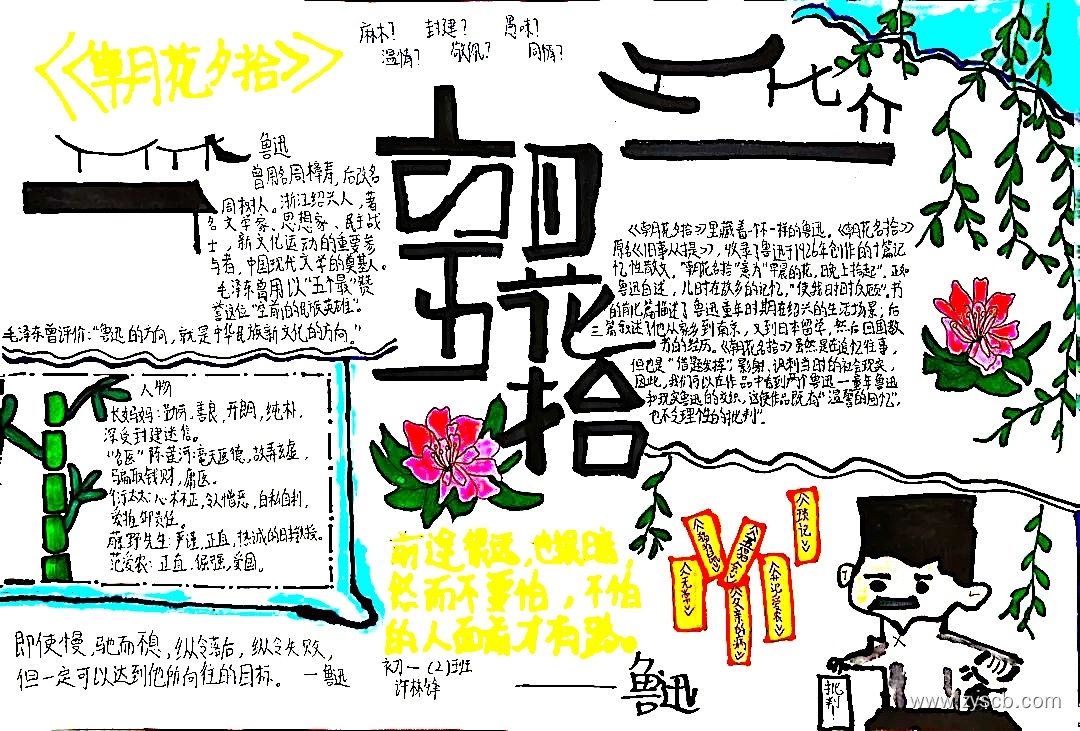 《朝花夕拾》
麻木? 封建? 愚昧?
温情? 敬佩? 同情?
简介
鲁迅
曾用名周樟寿,后改名
周树人。浙江绍兴人,著
名文学家、思想家、民主战
士,新文化运动的重要参
与者,中国现代文学的奠基人。
毛泽东曾用以"五个最"赞
誉这位"空前的民族英雄"。
毛泽东曾评价:"鲁迅的方向,就是中华民族新文化的方向。"
朝花夕拾
《朝花夕拾》里藏着不一样的鲁迅。《朝花夕拾》
原名《旧事从提》,收录了鲁迅于1926年创作的十篇记
忆性散文,"朝花夕拾"意为"早晨的花,晚上拾起"。正如
鲁迅自述,儿时在故乡的记忆,"使我日日时反顾"。书
的前几篇描述了鲁迅童年时期在绍兴的生活场景;后
三篇叙述了他从家乡到南京,又到日本留学,然后回国教
书的经历。《朝花夕拾》虽然是在追忆往事,
但也是"借题发挥",影射、讽刺当时的社会现实,
因此,我们可以在作品中看到两个鲁迅一童年鲁迅
和现实鲁迅的交织,这使作品既有"温馨的回忆",
也不乏理性的批判"。
人物
长妈妈:勤劳,善良,开朗,纯朴,
深受封建迷信。
"名医"陈莲河:毫无医德,故弄玄虚,
骗取钱财,庸医。
衍太太:心术不正,令人憎恶,自私自利,
爱推卸责任。
藤野先生:严谨,正直,热诚的日本教授。
范爱农:正直,倔强,爱国。
即使慢,驰而不息,纵令落后,纵令失败,
但一定可以达到他所向往的目标。 —鲁迅
前途很远,也很暗
然而不要怕,不怕
的人面前才有路。
——鲁迅
初一(2)班
《狗猫鼠》
《五猖会》
《琐记》
《无常》
《父亲的病》
《范爱农》
批判
www.zyscb.com